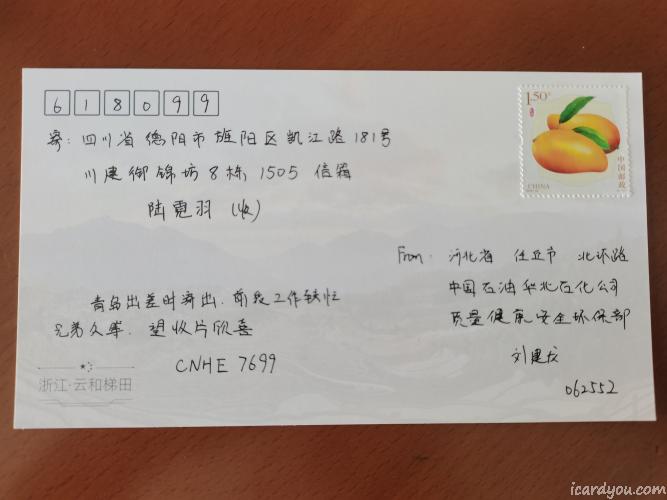 618099
寄：四川省德阳市旌阳区凯江路181号
川建御锦坊8栋1505信箱
陆霓羽（收）
1.50元
中国邮政
CHINA
From：河北省 任丘市 北环路
中国石油华北石化公司
质量健康安全环保部
刘建
062552
青岛出差时寄出，前段工作较忙
兄弟久等．望收片欣喜
CNHE 7699
浙江·云和梯田
icardyou.com